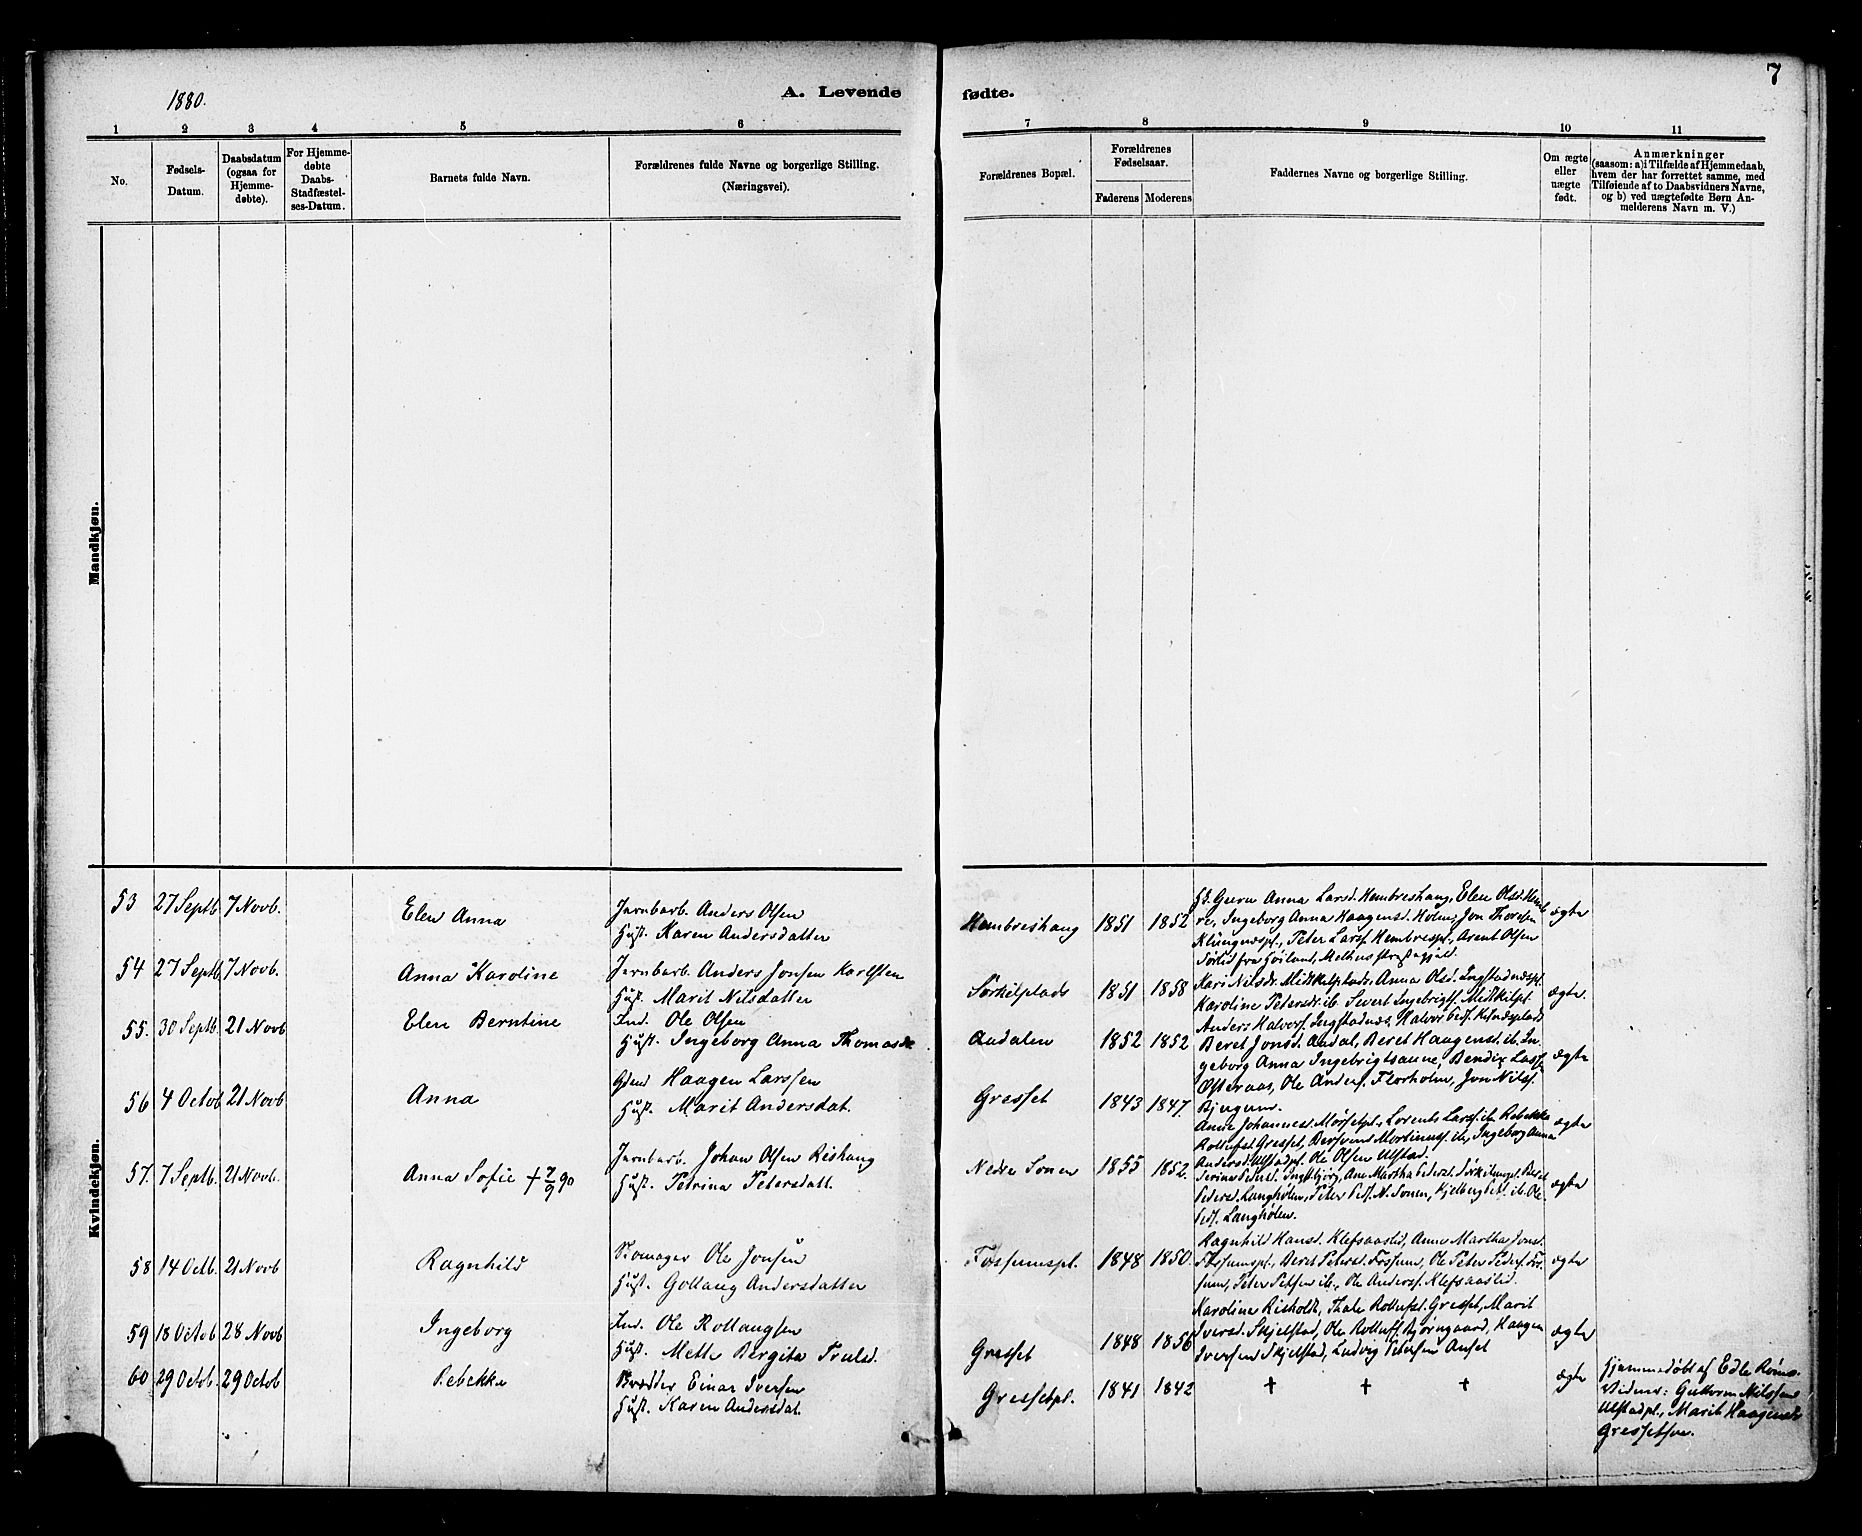 1880.
A. Levende
fødte.
7
1 2 3 4 5 6 7 8 9 10 11
No.
Fødsels-
Datum.
Daabsdatum
(ogsaa for
Hjemme-
døbte).
For Hjemme-
døbte
Daabs-
Stadfæstel-
ses-Datum.
Barnets fulde Navn.
Forældrenes fulde Navne og borgerlige Stilling.
(Næringsvei).
Forældrenes Bopæl.
Forældrenes
Fødselsaar.
Faderens Moderens
Faddernes Navne og borgerlige Stilling.
Om ægte
eller
uægte
født.
Anmærkninger
(saasom: a) i Tilfælde af Hjemmedaab,
hvem der har forrettet samme, med
Tilføiende af to Daabsvidners Navne,
og b) ved uægtefødte Børn An-
melderens Navn m. V.)
Mandkjøn.
Kvindekjøn.
53 27 Septb. 7 Novb.
Elen Anna
Jernbarb. Anders Olsen
Hust. Karen Andersdatter
Hembreshaug 1851 1852
Gd. Guru Anna Larsd. Hembreshaug, Elen Olsd. Hemb-
re, Ingeborg Anna Haagensd. Holem, Jon Thoresen
Klungnæspl., Peter Larss. Hembrespl., Arent Olsen
Sørlid fra Høiland, Melhus
ægte
54 27 Septb. 7 Novb.
Anna Karoline
Jernbarb. Anders Jonsen Karlsten
Hust. Marit Nilsdatter
Sørkilplads 1851 1858
Kari Nilsdr. Midtkilplads, Anna Olsd. Ingstadnæspl.
Karoline Petersdr. ib. Sivert Ingebrigts. Midtkilpl.
Anders Halvors. Ingstadnæs, Halvor
ægte.
55. 30 Septb. 21 Novb
Elen Berntine
Ind. Ole Olsen
Hust. Ingeborg Anna Thomasdr
Aadalen 1852 1852
Beret Jonsd. Aadal, Beret Haagensd. ib. In-
geborg Anna Ingebrigtsaune, Bendix Larss
Østeraas, Ole Anders. Florholm, Jon Nilss.
Bjugum.
ægte
56 4 Octob 21 Novb
Anna
Gdmd Haagen Larssen
Hust. Marit Andersdat.
Gresset 1843 1847.
Anne Johannesd. Mørsetpl., Lorents Larss. ib. Rebekka
Rollufsd. Gresset, Bersvend Mortinuss. ib., Ingeborg Anna
Andersd. Ulstadpl. Ole Olsen Ulstad.
ægte
57. 7 Septb. 21 Novb.
Anna Sofie + 7/9 90
Jernbarb. Johan Olsen Reshaug
Hust. Petrina Petersdatt.
Nedre Sonen 1855 1852.
Serina Peders. Ingstbjørg, Ane Martha Pedersd. Sørkilengpl. Beret
Pedersd. Langholen, Peter Peds. N. Sonen, Kjelberg Peds. ib. Ole
Peds. Langholen.
ægte
58 14 Octb. 21 Novb
Ragnhild
Skomager Ole Jonsen
Hust. Gollaug Andersdatter
Fossumspl. 1848 1850.
Ragnhild Hansd. Klefsaaslid, Anne Martha Jonsd.
Fossumspl., Beret Petersd. Fossum, Ole Peter Peders. Fos-
sum, Peter Petsen ib., Ole Anderss. Klefsaaslid.
ægte
59 18 Octob 28 Novb
Ingeborg
Ind. Ole Rollaugsen
Hust. Mette Bergita Trulsd.
Gresset 1848 1856
Karolina Risholt, Thale Rollufsd. Gresset, Marit
Iversd. Skjelstad, Ole Rolluffs. Bjørngaard, Haagen
Iversen Skjelstad, Ludvig Petersen Auset
ægte
60 29 Octob. 29 Octob
Rebekka
Brødder Einar Iversen
Hust. Karen Andersdat.
Gressetpl. 1841 1842
+ + +
ægte
Hjemmedøbt af Edle Røms.
Vidner: Guttorm Nilssen
Ulstadpl., Marit Haagensdr
Gressetsve.